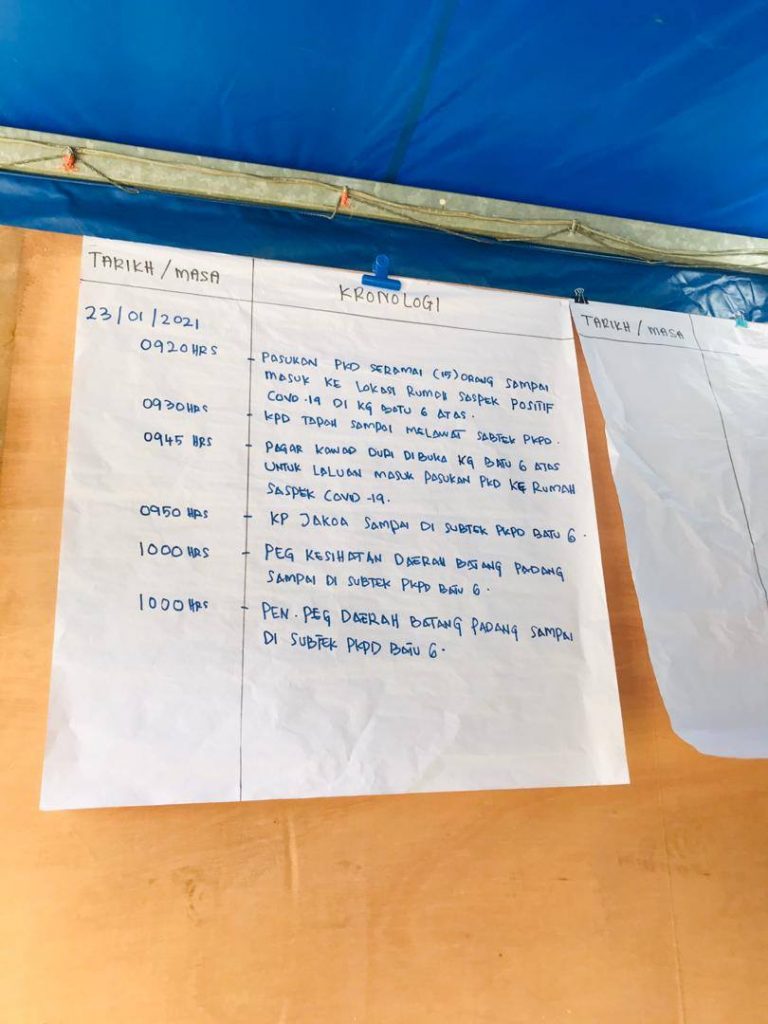 TARIKH / MASA
KRONOLOGI
23/01/2021
0920 HRS - PASUKAN PKD SERAMAI (15) ORANG SAMPAI
MASUK KE LOKASI RUMAH SASPEK POSITIF
COVID-19 DI KG BATU 6 ATAS.
0930 HRS - KPD TAPAH SAMPAI MELAWAT SABTEK PKPD.
0945 HRS - PAGAR KAWAD DURI DIBUKA KG BATU 6 ATAS
UNTUK LALUAN MASUK PASUKAN PKD KE RUMAH
SASPEK COVID-19.
0950 HRS - KP JAKOA SAMPAI DI SUBTEK PKPD BATU 6.
1000 HRS - PEG KESIHATAN DAERAH BATANG PADANG
SAMPAI DI SUBTEK PKPD BATU 6.
1000 HRS - PEN. PEG DAERAH BATANG PADANG SAMPAI
DI SUBTEK PKPD BATU 6.
TARIKH / MASA